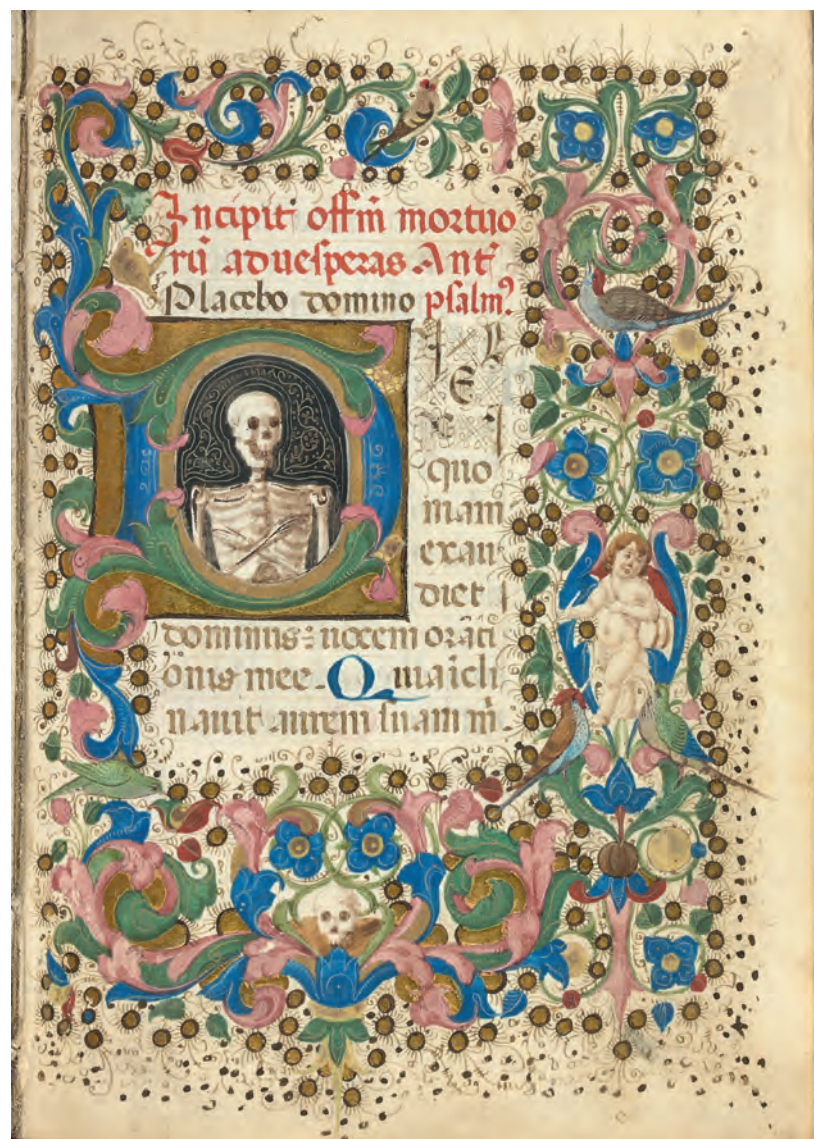 Incipit offm̄ mortuo
rū ad uesperas Ant̄
Placebo domino psalmꝰ
D I L
E
X I
quo
niam
exau
diet
dominus: uocem orati
onis mee. Quia īcli
nauit aurem suam m̄.